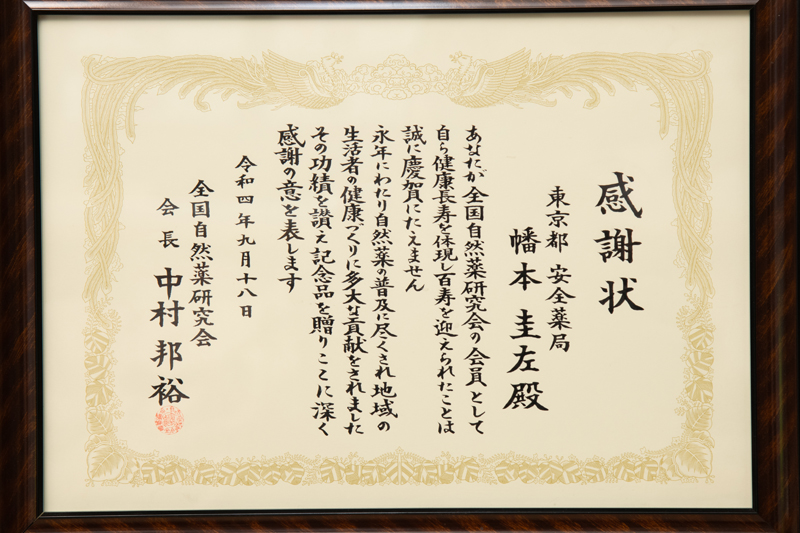 感謝状
東京都 安全薬局
幡本圭左殿
あなたが全国自然薬研究会の会員として
自ら健康長寿を体現し百寿を迎えられたことは
誠に慶賀にたえません
永年にわたり自然薬の普及に尽くされ地域の
生活者の健康づくりに多大な貢献をされました
その功績を讃え記念品を贈りここに深く
感謝の意を表します
令和四年九月十八日
全国自然薬研究会
会長 中村邦裕